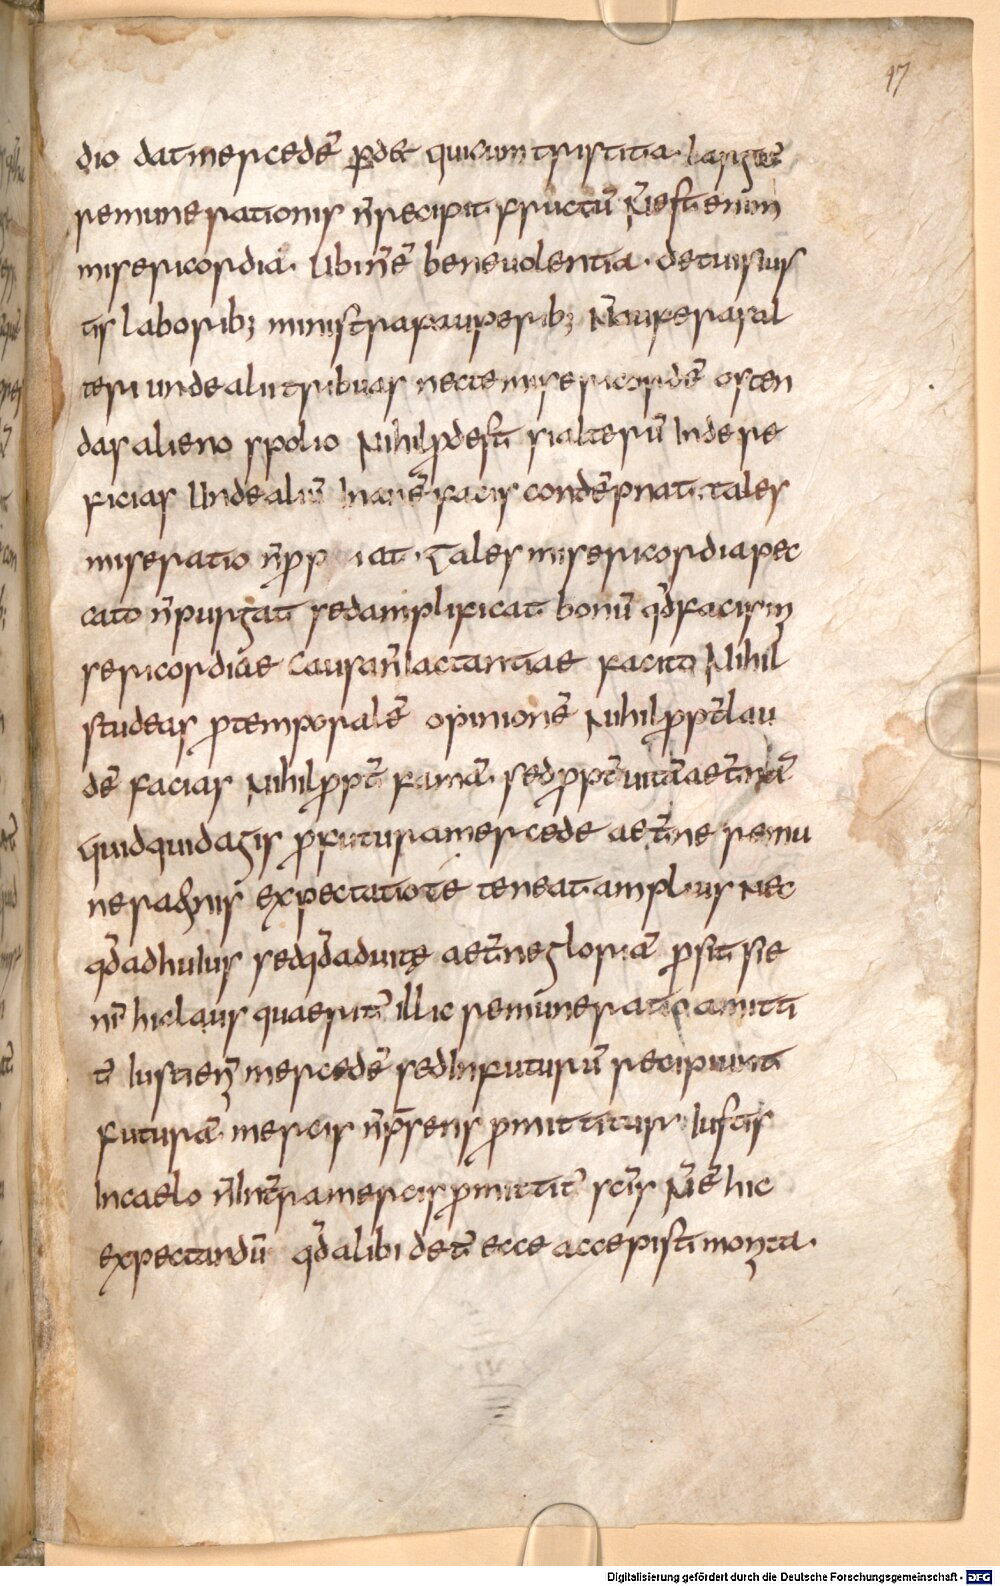 47
dio dat mercedē ꝑdet qui cum tristitia largitur
remunerationis n̄ recipit fructū N̄ est enim
misericordia. Ubi n̄ ē benevolentia. de tuis ius
tis laborib; ministra pauperib; Nō auferas al
teri unde alii tribuas nec te misericordē osten
das alieno spolio Nihil prodest si alterū Inde re
ficias Unde aliū Inanē facis condēpnat. tales
miseratio n̄ Tales misericordia pec
cato n̄ purgat sed amplificat. bonū qd̄ facis mi
sericordiae causa n̄ Iactantiae facito Nihil
studeas ꝓ temporalē opinionē Nihil ꝓpt̄ lau
dē facias Nihil ꝓpt̄ famā. sed ꝓpt̄ vitā aet̄nā
Quidquid agis ꝓ futura mercede aet̄ne remu
nerationis expectatio te teneat amplius Nec
qd̄ ad huius sed qd̄ ad vitę aet̄ne gloriā ꝓsit sie
ni hic laus quaerit̄ illic remuneratio amitti
t̄ Iusti en̄ mercedē sed In futurū recipiunt
futurā mercis n̄ p̄sens ꝓmittitur Iustis
In caelo n̄ In t̄ra mercis ꝓmittit̄ sc̄is N̄ ē hic
expectandū qd̄ alibi det̄ ecce accepisti monita.
Digitalisierung gefördert durch die Deutsche Forschungsgemeinschaft - DFG